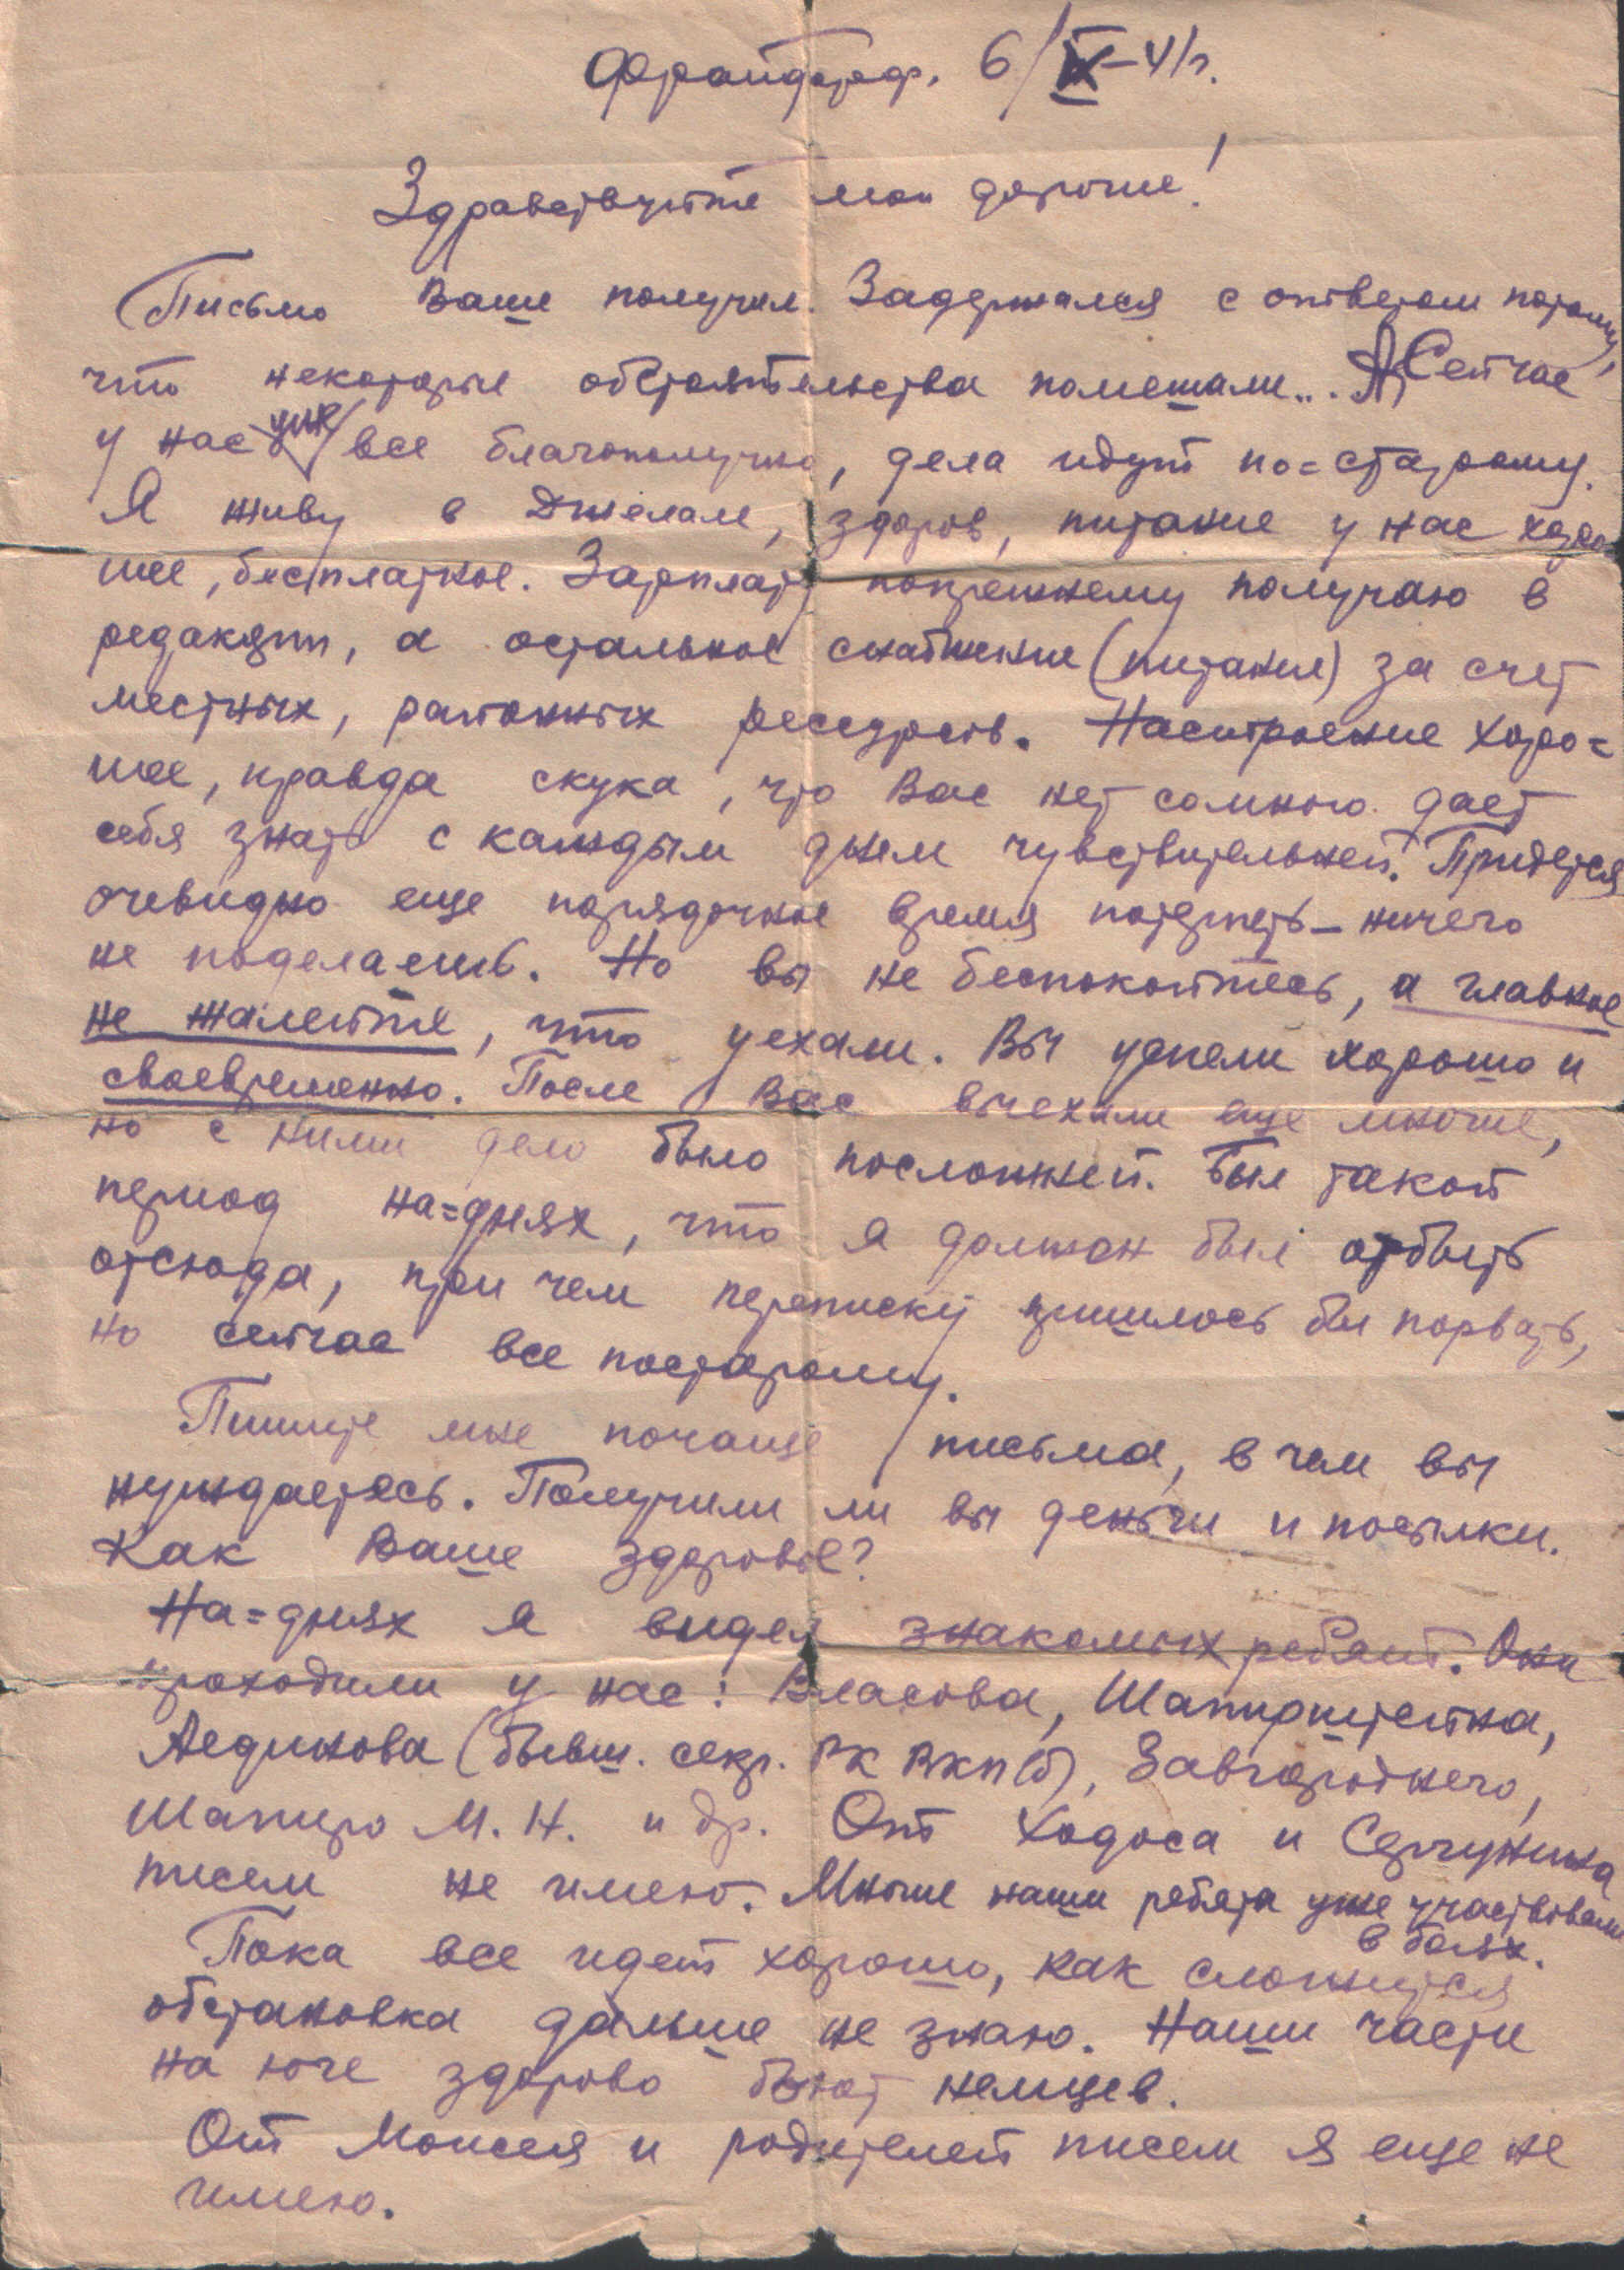 Фрайдорф, 6/IX-41г.
Здравствуйте мои дорогие!
Письмо Ваше получил. Задержался с ответом потому,
что некоторые обстоятельства помешали... А Сейчас
у нас уже все благополучно, дела идут по=старому.
Я живу в Джелале, здоров, питание у нас хоро
шее, бесплатное. Зарплату попрежнему получаю в
редакции, а остальное снабжение (питание) за счет
местных, районных рессурсов. Настроение хоро=
шее, правда скука, что Вас нет сомною дает
себя знать с каждым днем чувствительней. Придется
очевидно еще порядочное время потерпеть – ничего
не поделаешь. Но вы не беспокойтесь, а главное
не жалейте, что уехали. Вы успели хорошо и
своевременно. После Вас выехали еще многие,
но с ними дело было посложней. Был такой
период на=днях, что я должен был отбыть
отсюда, при чем переписку пришлось бы порвать,
но сейчас все постарому.
Пишите мне почаще письма, в чем вы
нуждаетесь. Получили ли вы деньги и посылки.
Как Ваше здоровье?
На=днях я видел знакомых ребят. Они
проходили у нас: Власова, Шапиритейна,
Аединова (бывш. секр. РК ВКП(б), Завгороднего,
Шапиро М. Н. и др. От Ходоса и Серчунина
писем не имею. Многие наши ребята уже участвовали
в боях.
Пока все идет хорошо, как сложится
обстановка дальше не знаю. Наши части
на юге здорово бьют немцев.
От Моисея и родителей писем я еще не
имею.